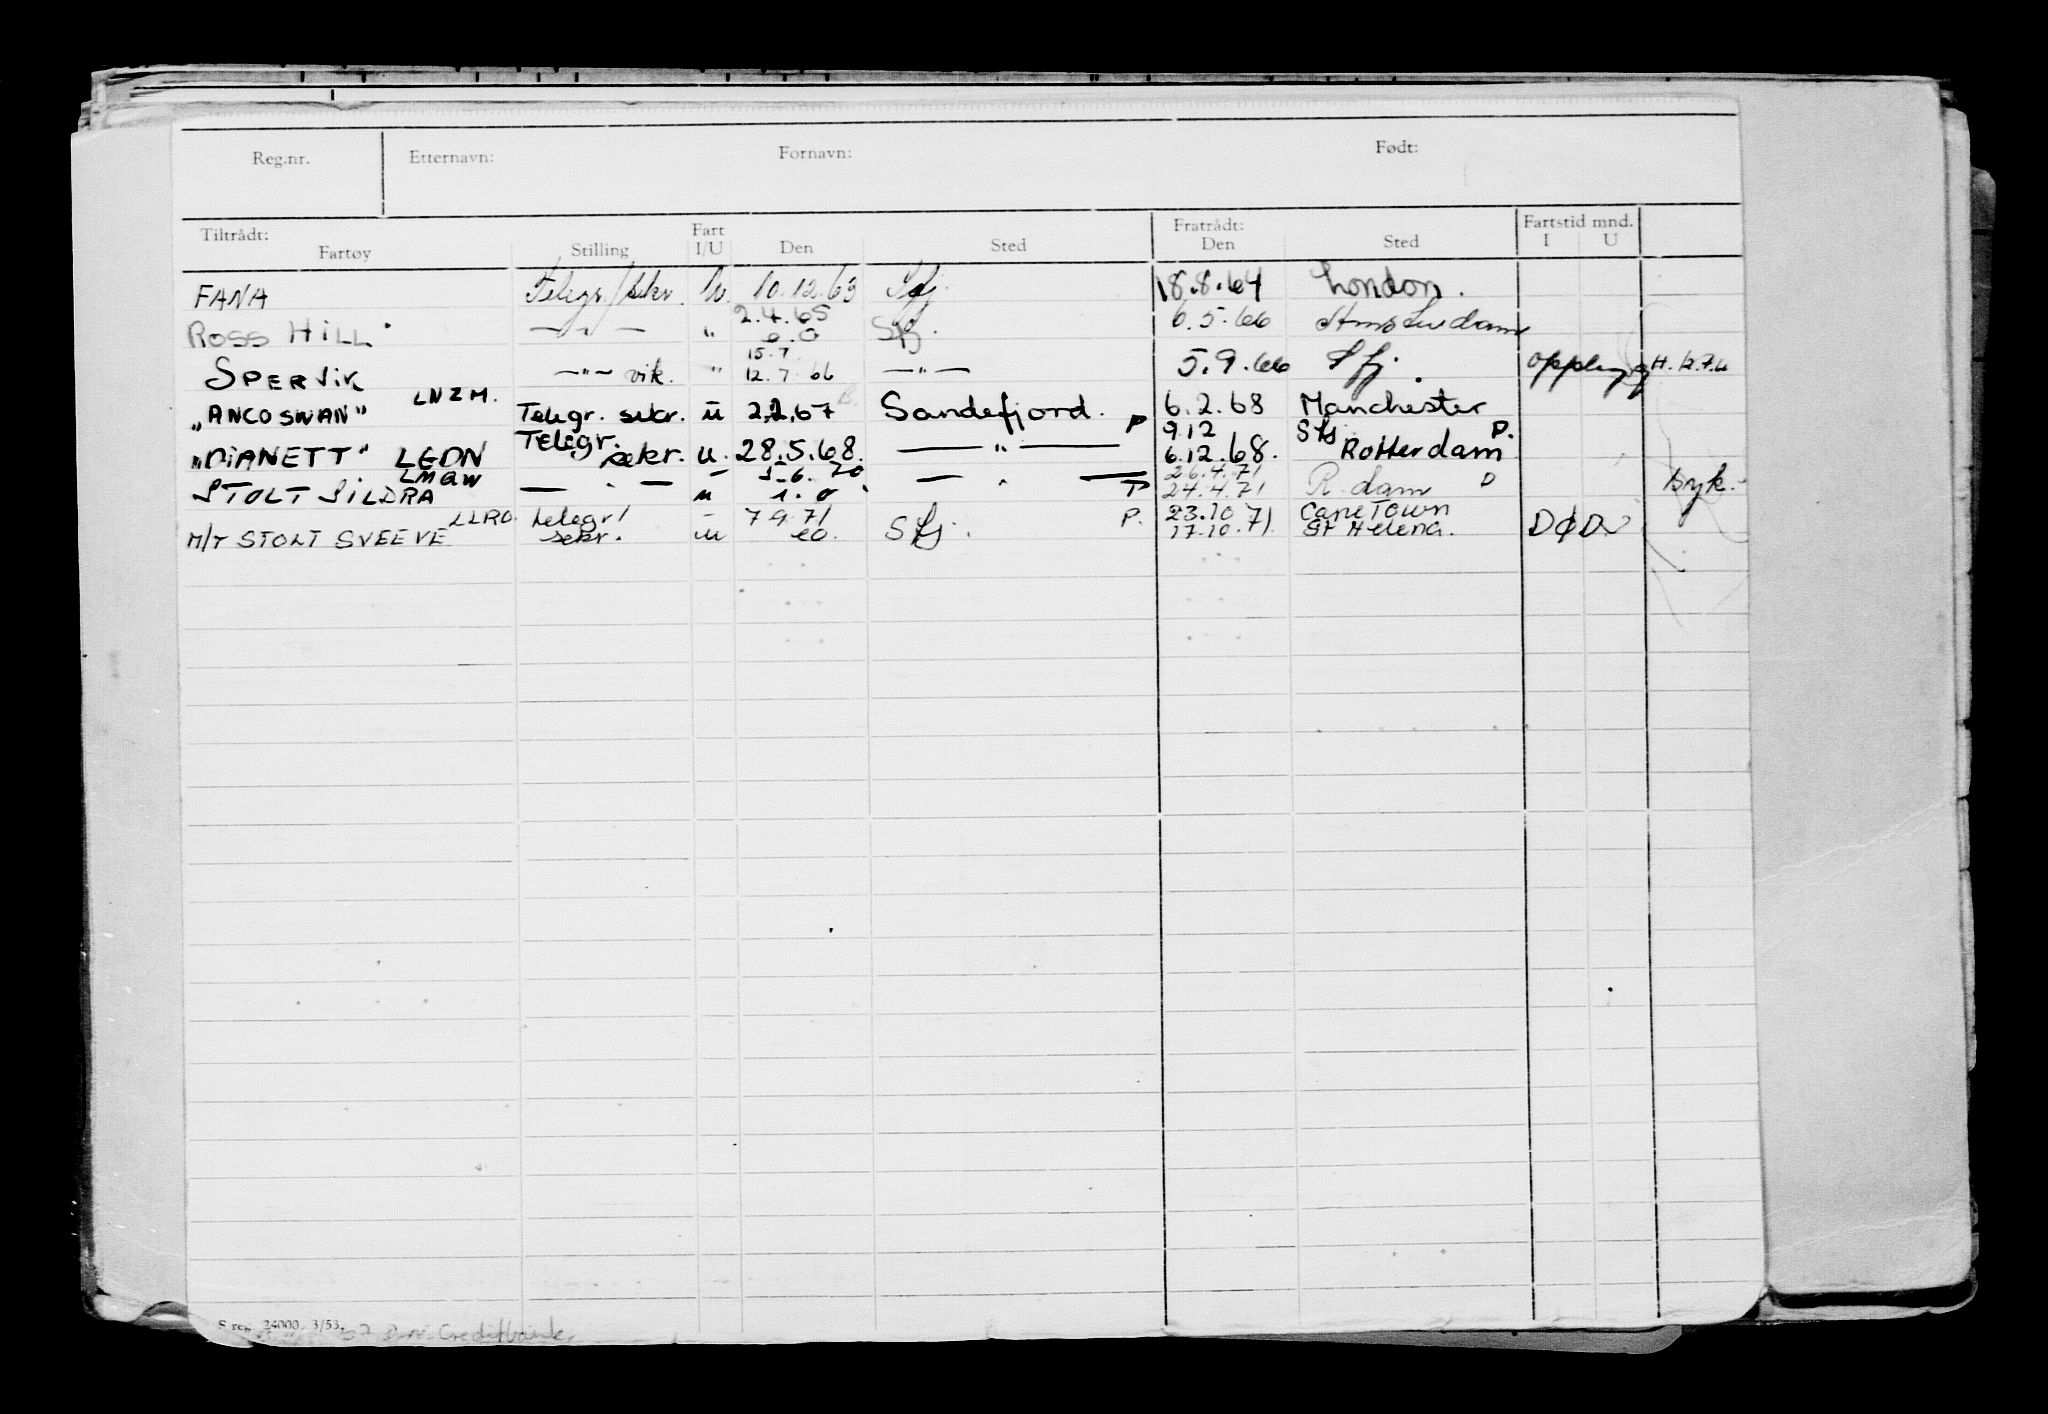 Reg.nr. Etternavn: Fornavn: Født:
Tiltrådt: Fart Fratrådt: Fartstid mnd.
Fartøy Stilling I/U Den Sted Den Sted I U
FANA Telegr./sekr. U. 10.12.63 Sfj. 18.8.64 London.
2.4.65
ROSS HILL —"— " Sfj. 6.5.66 Amsterdam
15.7
SPERVIK —"— vik. " 12.7 66 —"— 5.9.66 Sfj. H. 12.7.6
LNZM.
"ANCO SWAN" Telegr. sekr. u 2.2.67 Sandefjord. P 6.2.68 Manchester
Telegr. 9.12 Sfj P.
"DIANETT" LGDN sekr. u. 28.5.68. —"— 6.12.68. Rotterdam
LMGW 5.6.70 26.4.71
STOLT SILDRA —"— u 1.6 —"— P 24.4.71 R.dam P syk.
LLRO. telegr/ 7 9 71 P. 23.10 71. Cape Town
M/T STOLT SVEEVE sekr. u Sfj. 17.10.71. St Helena. DØD
S reg. 24000. 3/53.